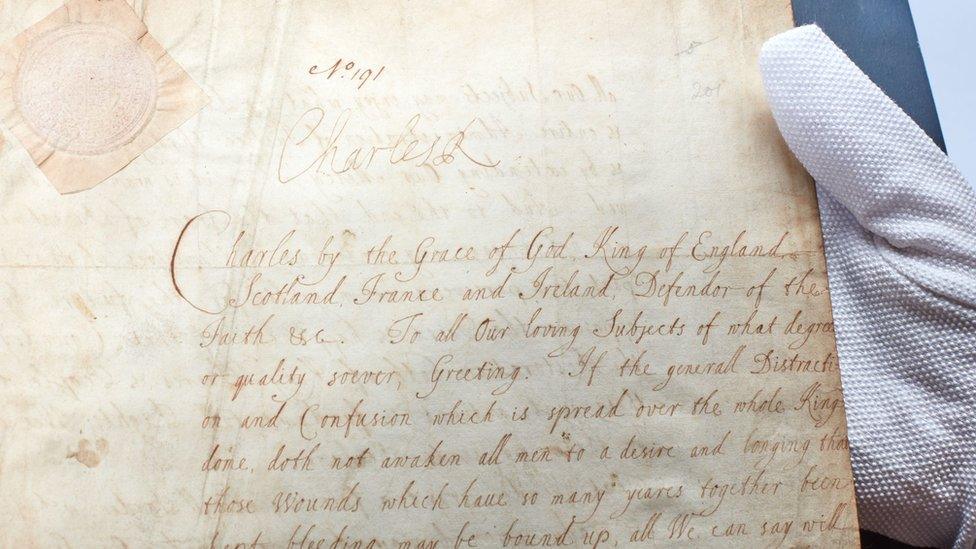 No. 191
201
Charles R
Charles by the Grace of God, King of England,
Scotland, France and Ireland, Defendor of the
Faith &c. To all Our loving Subjects of what degree
or quality soever, Greeting. If the generall Distracti
on and Confusion which is spread over the whole King
dome, doth not awaken all men to a desire and longing that
those Wounds which have so many yeares together been
kept bleeding may be bound up, all We can say will